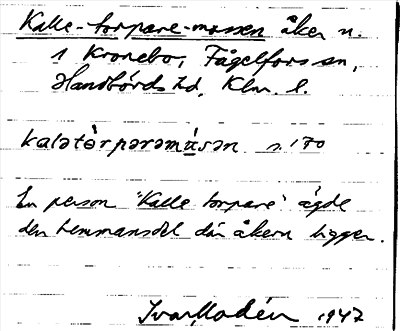 Kalle-torpare-mossen åker n.
1 Kronebo, Fågelfors sn,
Handbörds hd, Klm. l.
kalətòrparəmu̇́sən s. 170
En person "Kalle torpare" ägde
den hemmansdel där åkern ligger.
Ivar Modéer 1947